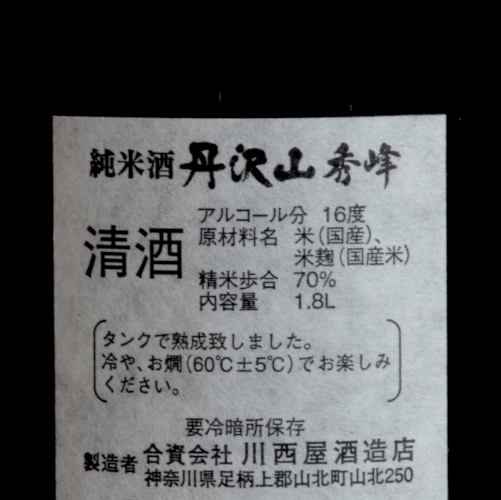 純米酒 丹沢山 秀峰
清酒
アルコール分 16度
原材料名 米(国産)、
米麹(国産米)
精米歩合 70%
内容量 1.8L
タンクで熟成致しました。
冷や、お燗(60℃±5℃)でお楽しみ
ください。
要冷暗所保存
製造者 合資会社 川西屋酒造店
神奈川県足柄上郡山北町山北250